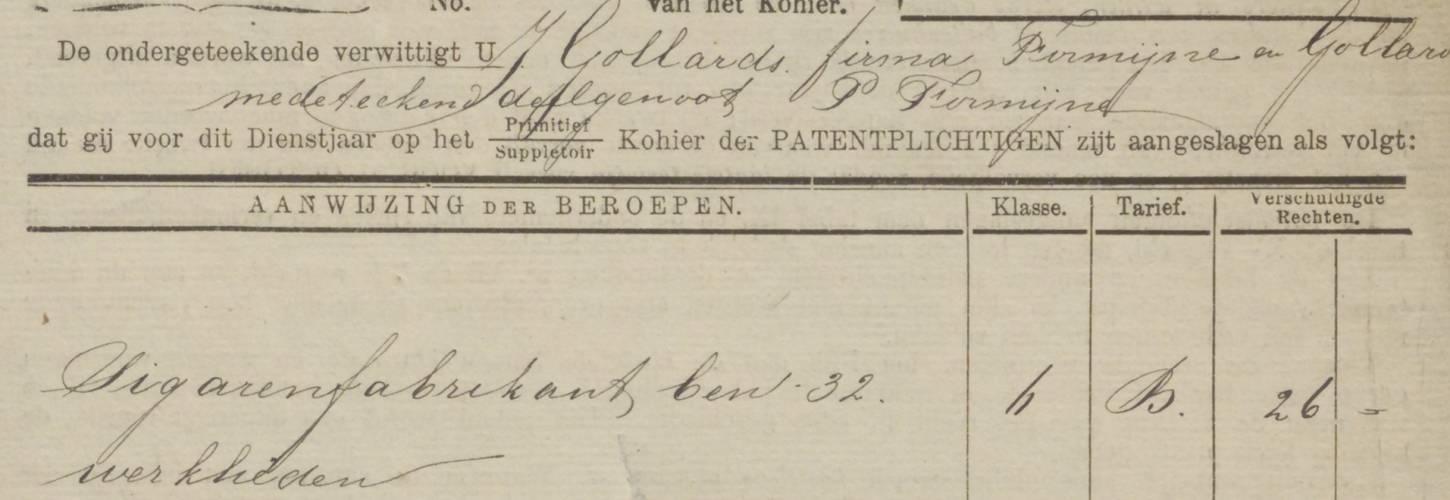 No. van het Kohier.
De ondergeteekende verwittigt U J Gollards. firma Formijne en Gollard
medeteekend deelgenoot P Formijne
dat gij voor dit Dienstjaar op het Primitief Suppletoir Kohier der PATENTPLICHTIGEN zijt aangeslagen als volgt:
AANWIJZING DER BEROEPEN. Klasse. Tarief. Verschuldigde Rechten.
Sigarenfabrikant ben 32. B. 26 =
werklieden